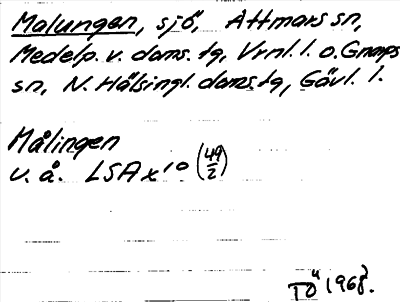 Malungen, sjö, Attmars sn,
Medelp. v. doms. tg, Vrnl. l. o. Gnarps
sn, N. Hälsingl. doms. tg, Gävl. l.
Målingen
v. å. LSA x 10 (49/2)
TÖ 1968.